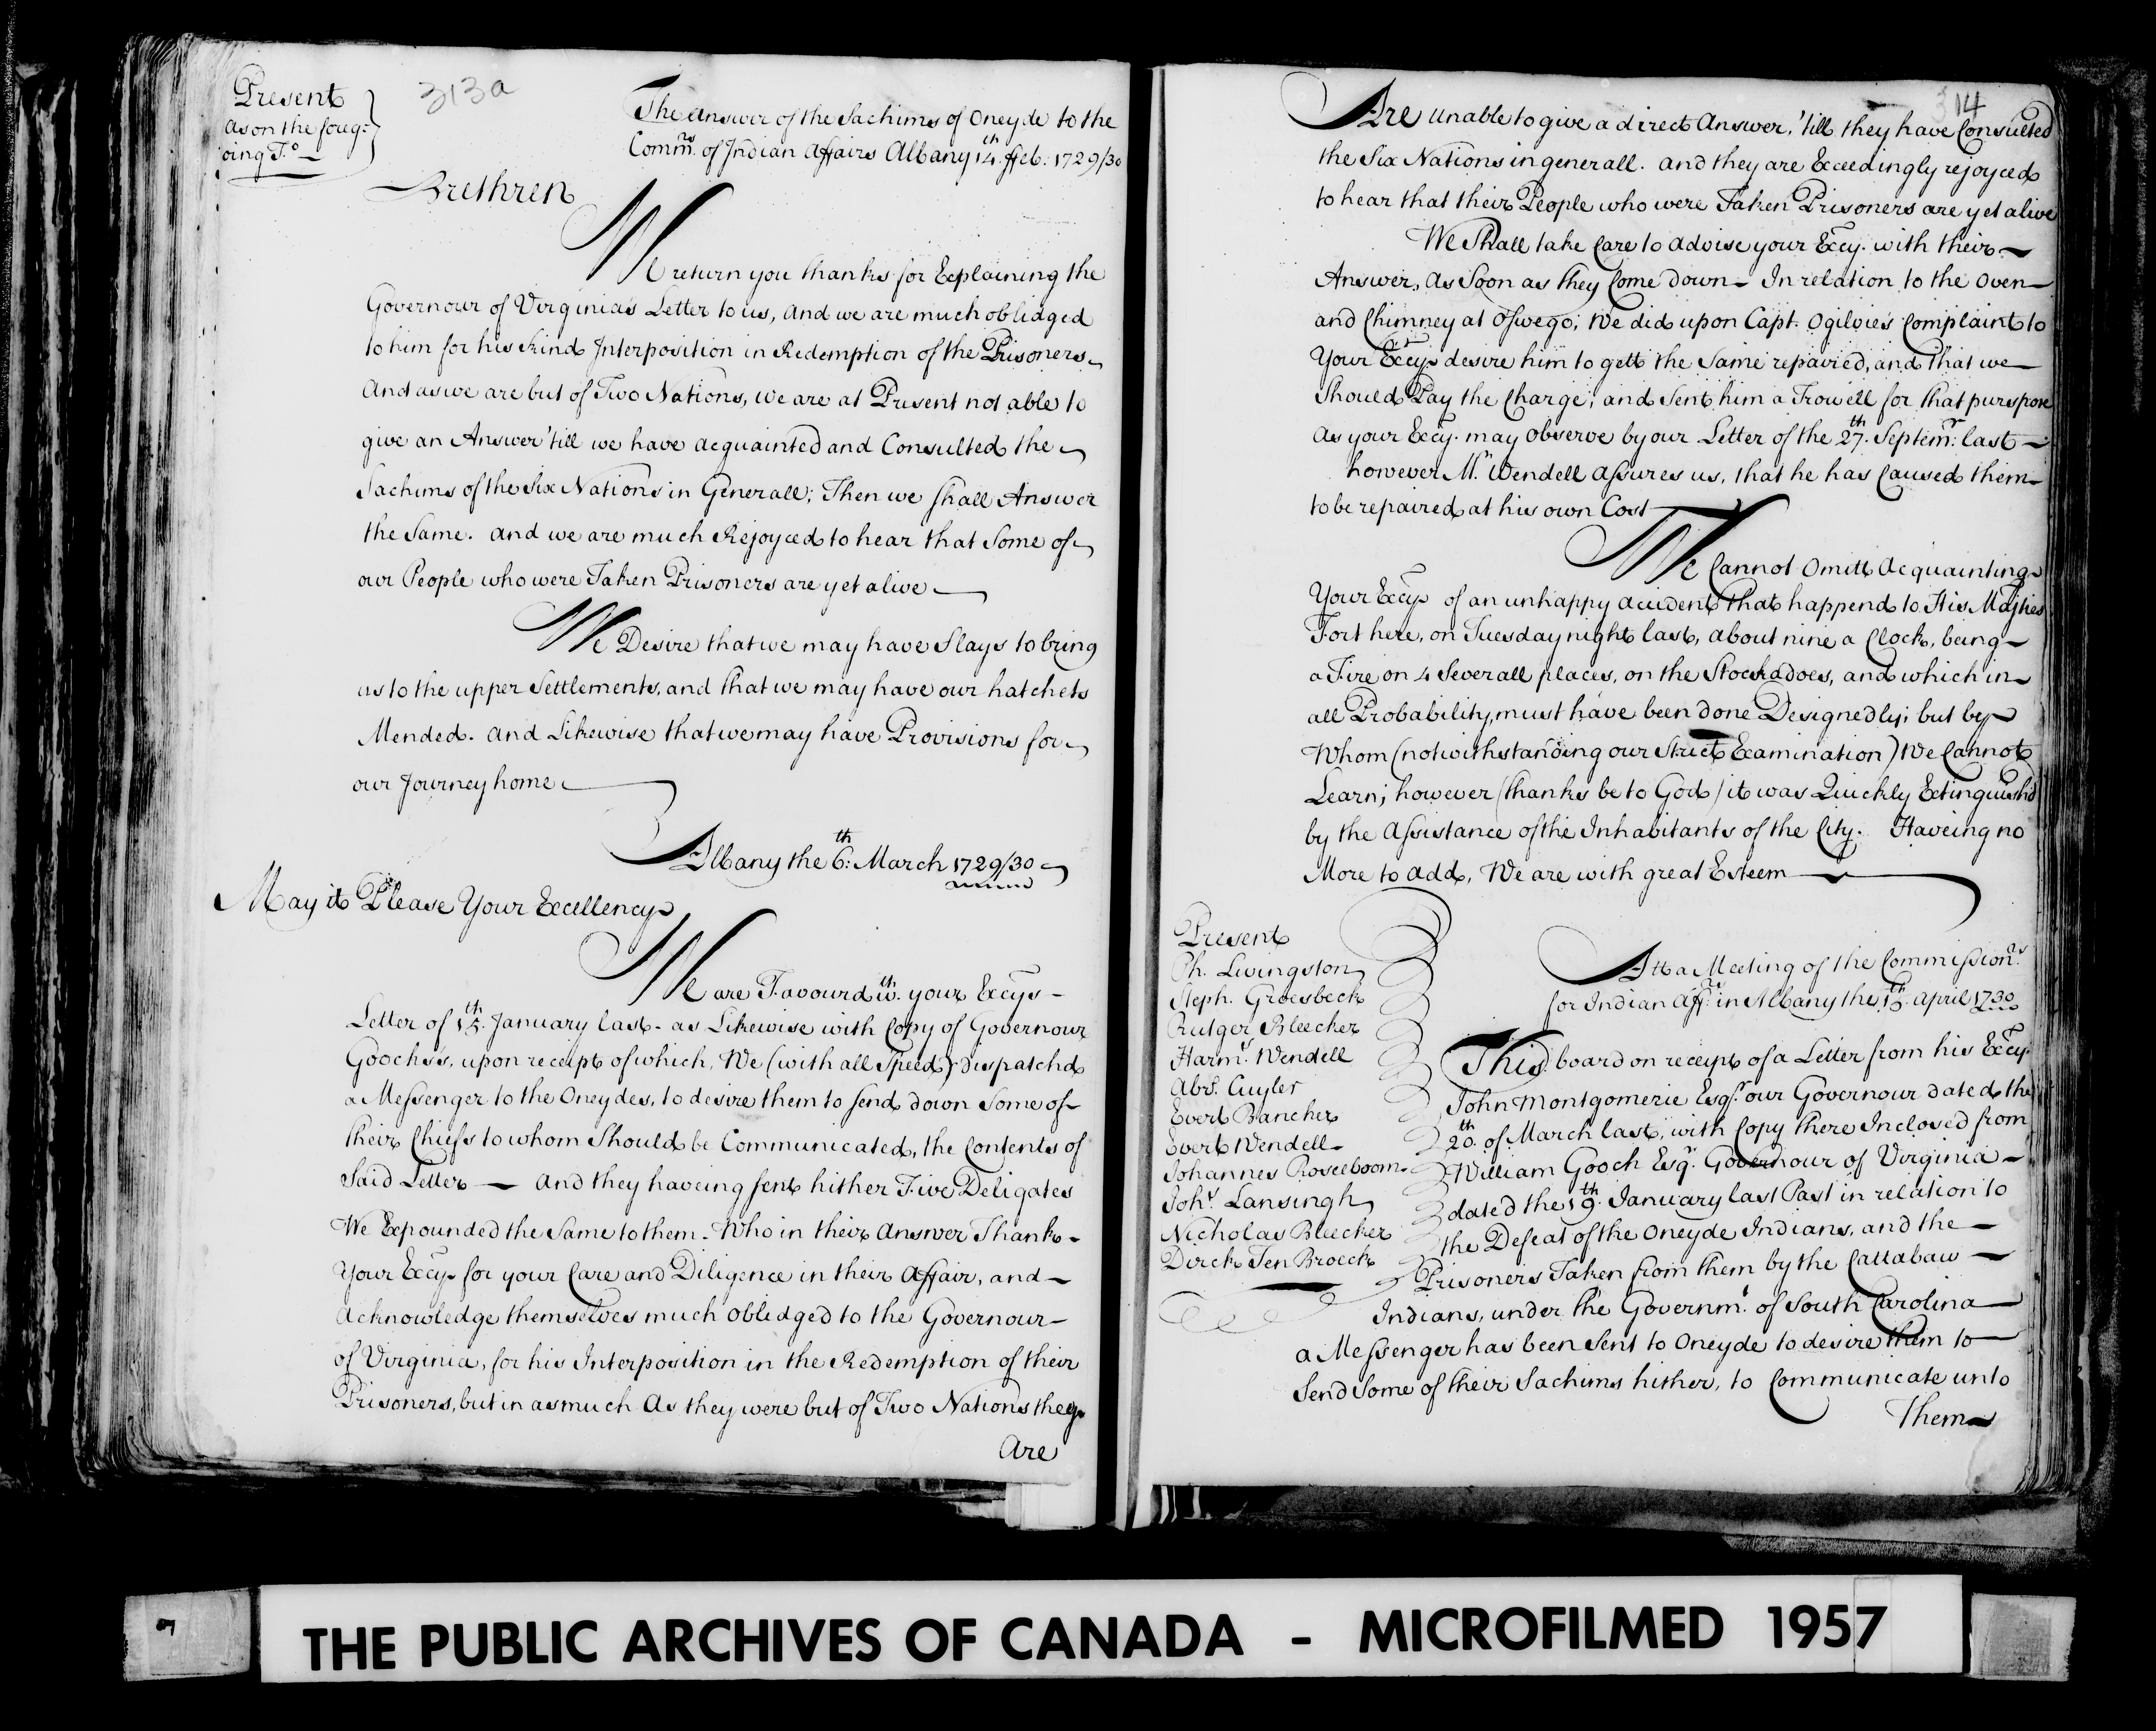 313a
Present
as on the foreg-
oing
The Answer of the Sachims of Oneyde to the
Commrs. of Indian Affairs Albany 14th. ffeb: 1729/30
Brethren
We return you thanks for Explaining the
Governour of Virginia's Letter to us, And we are much oblidged
to him for his kind Interposition in Redemption of the Prisoners
And as we are but of Two Nations, we are at Present not able to
give an Answer 'till we have acquainted and Consulted the
Sachims of the Six Nations in Generall; Then we shall Answer
the Same. And we are much Rejoyced to hear that Some of
our People who were Taken Prisoners are yet alive
We Desire that we may have Slays to bring
us to the upper Settlements, and that we may have our hatchets
Mended. And Likewise that we may have Provisions for
our Journey home
Albany the 6th: March 1729/30
May it Please Your Excellency
We are Favourd wth. your Excys-
Letter of 15th. January last. as Likewise with Copy of Governour
Gooch's, upon receipt of which, We (with all Speed) Dispatchd
a Messenger to the Oneydes, to desire them to send down Some of
their Chiefs to whom Should be Communicated, the Contents of
Said Letter — And they haveing sent hither Five Deligates
We Expounded the Same to them. Who in their Answer Thank-
Your Excy. for your Care and Diligence in their Affair, and
Acknowledge themselves much obliedged to the Governour
of Virginia, for his Interposition in the Redemption of their
Prisoners, but in as much As they were but of Two Nations they
Are
314
Are unable to give a direct Answer, 'till they have Consulted
the Six Nations in generall. and they are Exceedingly rejoyced
to hear that their People who were Taken Prisoners are yet alive
We Shall take Care to advise your Excy. with their
Answer, As Soon as they Come down — In relation to the Oven
and Chimney at Oswego; We did upon Capt. Ogilvie's Complaint to
Your Excy. desire him to gett the Same repaired, and that we
Should Pay the Charge; and Sent him a Trowell for that purspose
As your Excy. may Observe by our Letter of the 27th. Septemr: last
however Mr. Wendell assures us, that he has Caused them
to be repaired at his own Cost
We Cannot Omitt Acquainting
Your Excy of an unhappy accident that happend to His Majties
Fort here, on Tuesday night last, about nine a Clock, being
a Fire on 4 Severall places, on the Stockadoes, and which in
all Probability, must have been done Designedly; but by
Whom (notwithstanding our Strict Examination) We Cannot
Learn; however (thanks be to God) it was Quickly Extinguishd
by the Assistance of the Inhabitants of the City. Haveing no
More to add, We are with great Esteem
Present
Ph. Livingston
Steph. Groesbeck
Rutger Bleecker
Harms. Wendell
Abrs. Cuyler
Evert Bancker
Evert Wendell
Johannes Roseeboom
Johs. Lansingh
Nicholas Bleecker
Dirck Ten Broeck
Att a Meeting of the Commissionrs.
for Indian Affrs. in Albany the 15th. April 1730
This board on receipt of a Letter from his Excy
John Montgomerie Esqr. our Governour dated the
20th. of March last, with Copy there Inclosed from
William Gooch Esqr. Governour of Virginia
dated the 19th. January last Past in relation to
the Defeat of the Oneyde Indians, and the
Prisoners Taken from them by the Cattabaw
Indians, under the Governmt. of South Carolina
a Messenger has been Sent to Oneyde to desire them to
Send Some of their Sachims hither, to Communicate unto
Them
THE PUBLIC ARCHIVES OF CANADA - MICROFILMED 1957